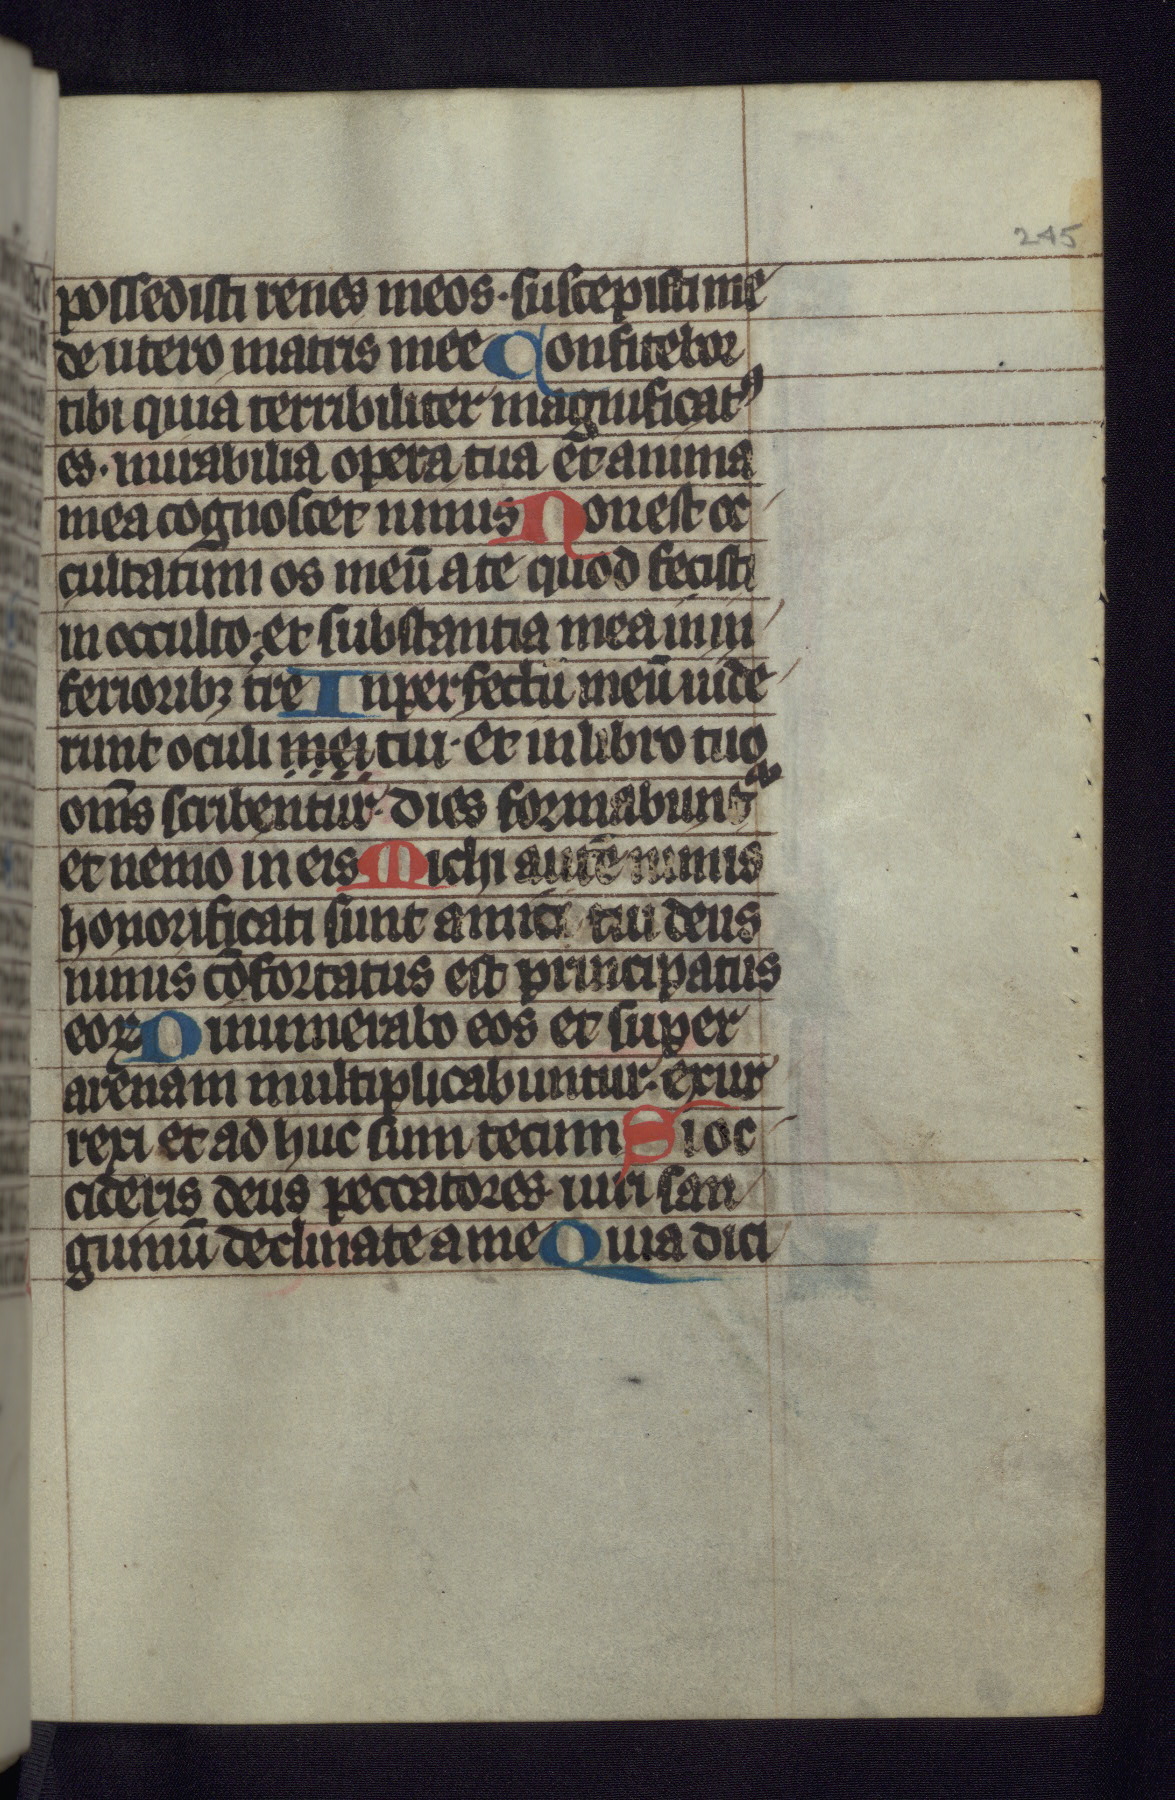 245
possedisti renes meos · suscepisti me
de utero matris mee Confitebor
tibi quia terribiliter magnificatꝰ
es · mirabilia opera tua et anima
mea cognoscet nimis Non est oc
cultatum os meū a te quod fecisti
in occulto · et substantia mea in in
ferioribꝫ tre Inperfectū meū uide
runt oculi mei tui · et in libro tuo
om̄s scribentur · dies formabunt᷑
et nemo in eis Michi autē nimis
honorificati sunt amici tui deus
nimis cōfortatus est principatus
eoꝝ Dinumerabo eos et super
arenam multiplicabuntur · exur
rexi et ad huc sum tecum Si oc
cideris deus peccatores · uiri san
guinū declinate a me Quia dici